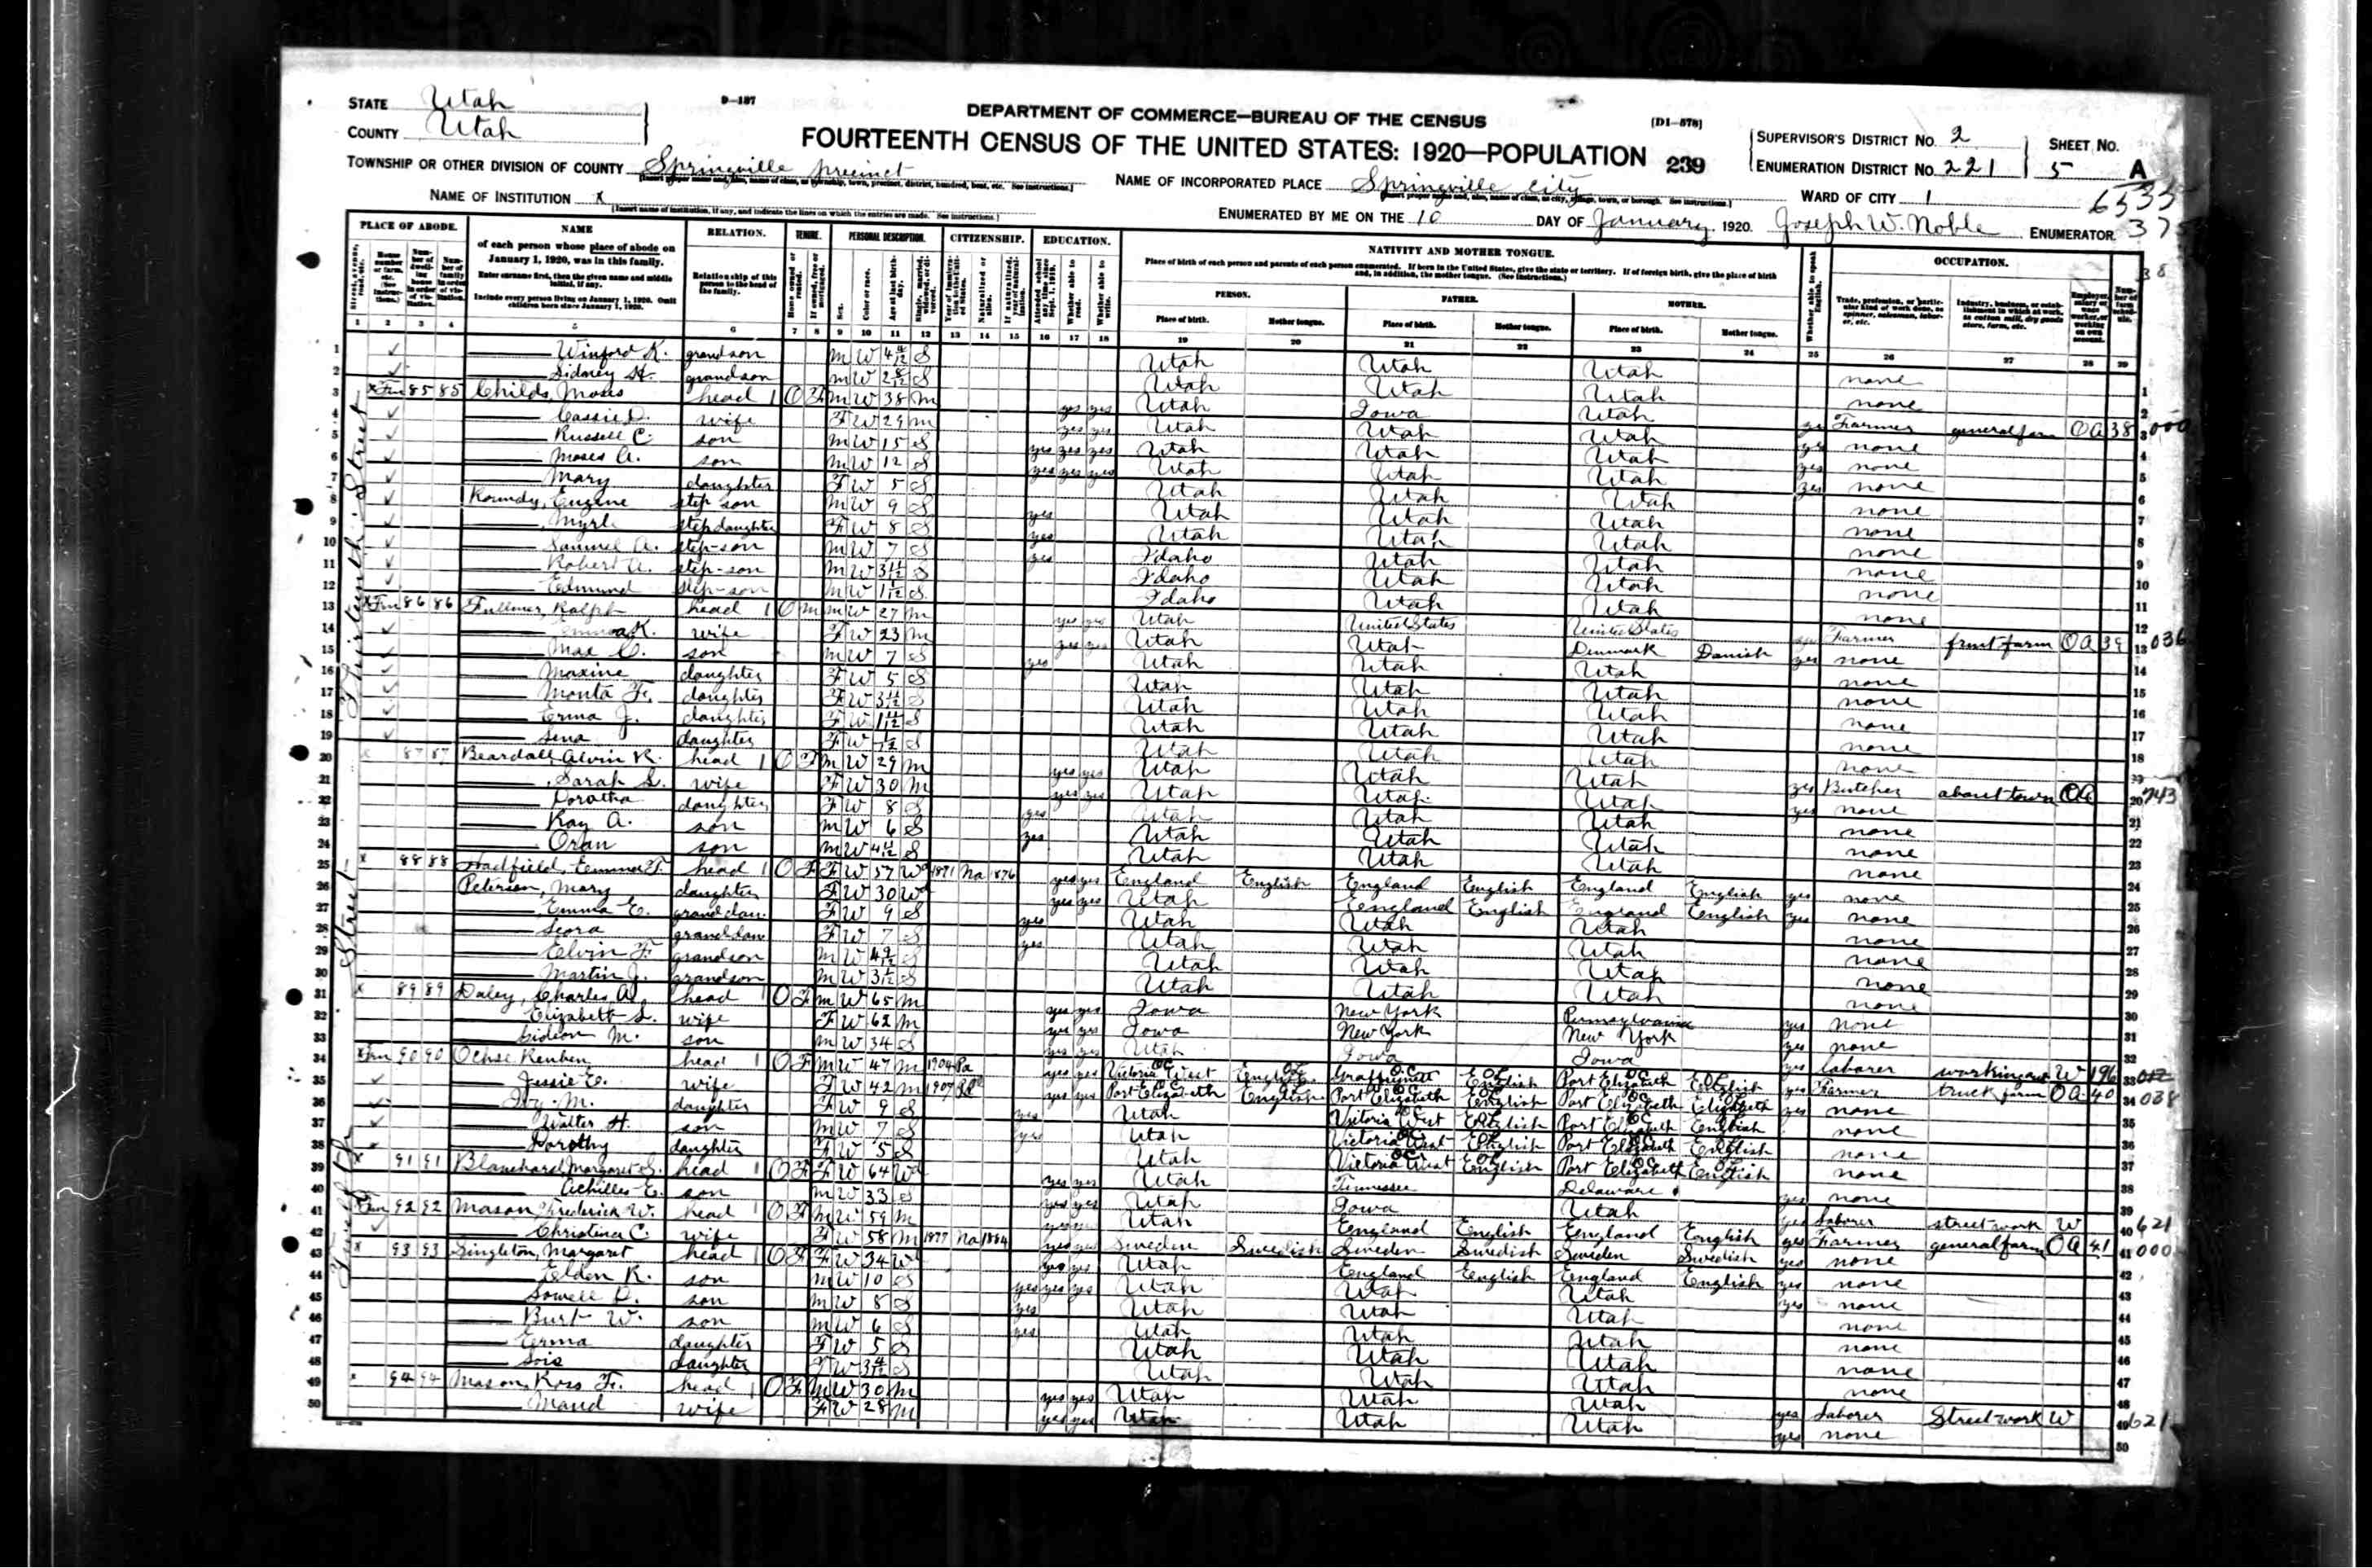 STATE Utah
COUNTY Utah
9-187
DEPARTMENT OF COMMERCE—BUREAU OF THE CENSUS
[D1-578]
FOURTEENTH CENSUS OF THE UNITED STATES: 1920—POPULATION 239
SUPERVISOR'S DISTRICT No. 2
ENUMERATION DISTRICT No. 221
SHEET No.
5 A
6535
TOWNSHIP OR OTHER DIVISION OF COUNTY Springville precinct
NAME OF INCORPORATED PLACE Springville City
WARD OF CITY 1
NAME OF INSTITUTION X
ENUMERATED BY ME ON THE 10 DAY OF January, 1920. Joseph W. Noble ENUMERATOR
PLACE OF ABODE. NAME RELATION. TENURE. PERSONAL DESCRIPTION. CITIZENSHIP. EDUCATION. NATIVITY AND MOTHER TONGUE. OCCUPATION.
of each person whose place of abode on January 1, 1920, was in this family.
Enter surname first, then the given name and middle initial, if any.
Include every person living on January 1, 1920. Omit children born since January 1, 1920.
Relationship of this person to the head of the family.
Place of birth of each person and parents of each person enumerated. If born in the United States, give the state or territory. If of foreign birth, give the place of birth and, in addition, the mother tongue. (See instructions.)
PERSON. FATHER. MOTHER.
Place of birth. Mother tongue. Place of birth. Mother tongue. Place of birth. Mother tongue.
1 2 3 4 5 6 7 8 9 10 11 12 13 14 15 16 17 18 19 20 21 22 23 24 25 26 27 28 29
1 Winford K. grandson M W 4 4/12 S Utah Utah Utah none
2 Sidney H. grandson M W 2 8/12 S Utah Utah Utah none
3 X Fm 85 85 Childs, Moses head 1 O F M W 38 M yes yes Utah Iowa Utah yes Farmer general farm OA 38 000
4 Cassie D. wife F W 29 M yes yes Utah Utah Utah yes none
5 Russell C. son M W 15 S yes yes yes Utah Utah Utah yes none
6 Moses A. son M W 12 S yes yes yes Utah Utah Utah yes none
7 Mary daughter F W 5 S Utah Utah Utah none
8 Roundy, Eugene step son M W 9 S yes Utah Utah Utah none
9 Myrl step daughter F W 8 S yes Utah Utah Utah none
10 Samuel A. step-son M W 7 S yes Idaho Utah Utah none
11 Robert A. step-son M W 3 S Idaho Utah Utah none
12 Edmund step-son M W 1 S Idaho Utah Utah none
13 X Fm 86 86 Fullmer, Ralph head 1 O M M W 27 M yes yes Utah United States United States yes Farmer fruit farm OA 39 036
14 K. wife F W 23 M yes yes Utah Utah Denmark Danish yes none
15 Max O. son M W 7 S yes Utah Utah Utah none
16 Maxine daughter F W 5 S Utah Utah Utah none
17 Monta F. daughter F W 3 S Utah Utah Utah none
18 Erma J. daughter F W 1 S Utah Utah Utah none
19 Lena daughter F W S Utah Utah Utah none
20 X 87 87 Beardall, Alvin R. head 1 O F M W 29 M yes yes Utah Utah Utah yes Butcher about town OA 743
21 Sarah L. wife F W 30 M yes yes Utah Utah Utah yes none
22 Doratha daughter F W 8 S yes Utah Utah Utah none
23 Ray A. son M W 6 S yes Utah Utah Utah none
24 Oran son M W 4 S Utah Utah Utah none
25 X 88 88 Hadfield, Emma F. head 1 O F F W 57 Wd 1871 Na 1876 yes yes England English England English England English yes none
26 Peterson, Mary daughter F W 30 Wd yes yes Utah England English England English yes none
27 Emma E. granddau. F W 9 S yes Utah Utah Utah none
28 Leora granddau F W 7 S yes Utah Utah Utah none
29 Elvin F. grandson M W 4 9/12 S Utah Utah Utah none
30 Martin J. grandson M W 3 S Utah Utah Utah none
31 X 89 89 Daley, Charles A. head O F M W 65 M yes yes Iowa New York Pennsylvania yes none
32 Elizabeth L. wife F W 62 M yes yes Iowa New York New York yes none
33 Gideon M. son M W 34 S yes yes Utah Iowa Iowa yes laborer working out W 196
34 X Fm 90 90 Ochse Reuben head 1 O F M W 47 M 1904 Pa yes yes Victoria West English English Port Elizabeth English yes Farmer truck farm OA 40 038
35 Jessie E. wife F W 42 M 1907 yes yes Port Elizabeth English Port Elizabeth English Port Elizabeth English yes none
36 Ivy M. daughter F W 9 S yes Utah Victoria West English Port Elizabeth English none
37 Walter H. son M W 7 S yes Utah Victoria West English Port Elizabeth English none
38 Dorothy daughter F W 5 S Utah Victoria West English Port Elizabeth English none
39 X 91 91 Blanchard, Margaret S. head 1 O F F W 64 Wd yes yes Utah Tennessee Delaware yes none
40 Achilles E. son M W 33 S yes yes Utah Iowa Utah yes Laborer street work W 621
41 X Fm 92 92 Mason, Frederick W. head 1 O F M W 59 M yes yes Utah England English England English yes Farmer general farm OA 41 000
42 Christina C. wife F W 58 M 1877 Na 1884 yes yes Sweden Swedish Sweden Swedish Sweden Swedish yes none
43 X 93 93 Singleton, Margaret head 1 O F F W 34 Wd yes yes Utah England English England English yes none
44 Elden R. son M W 10 S yes yes yes Utah Utah Utah yes none
45 Lowell D. son M W 8 S yes Utah Utah Utah none
46 Burt W. son M W 6 S yes Utah Utah Utah none
47 Erma daughter F W 5 S Utah Utah Utah none
48 Lois daughter F W 3 4/12 S Utah Utah Utah none
49 X 94 94 Mason, Ross F. head 1 O F M W 30 M yes yes Utah Utah Utah yes Laborer Street work W 621
50 Maud wife F W 28 M yes yes Utah Utah Utah yes none
Thirteenth Street
Twelfth Street